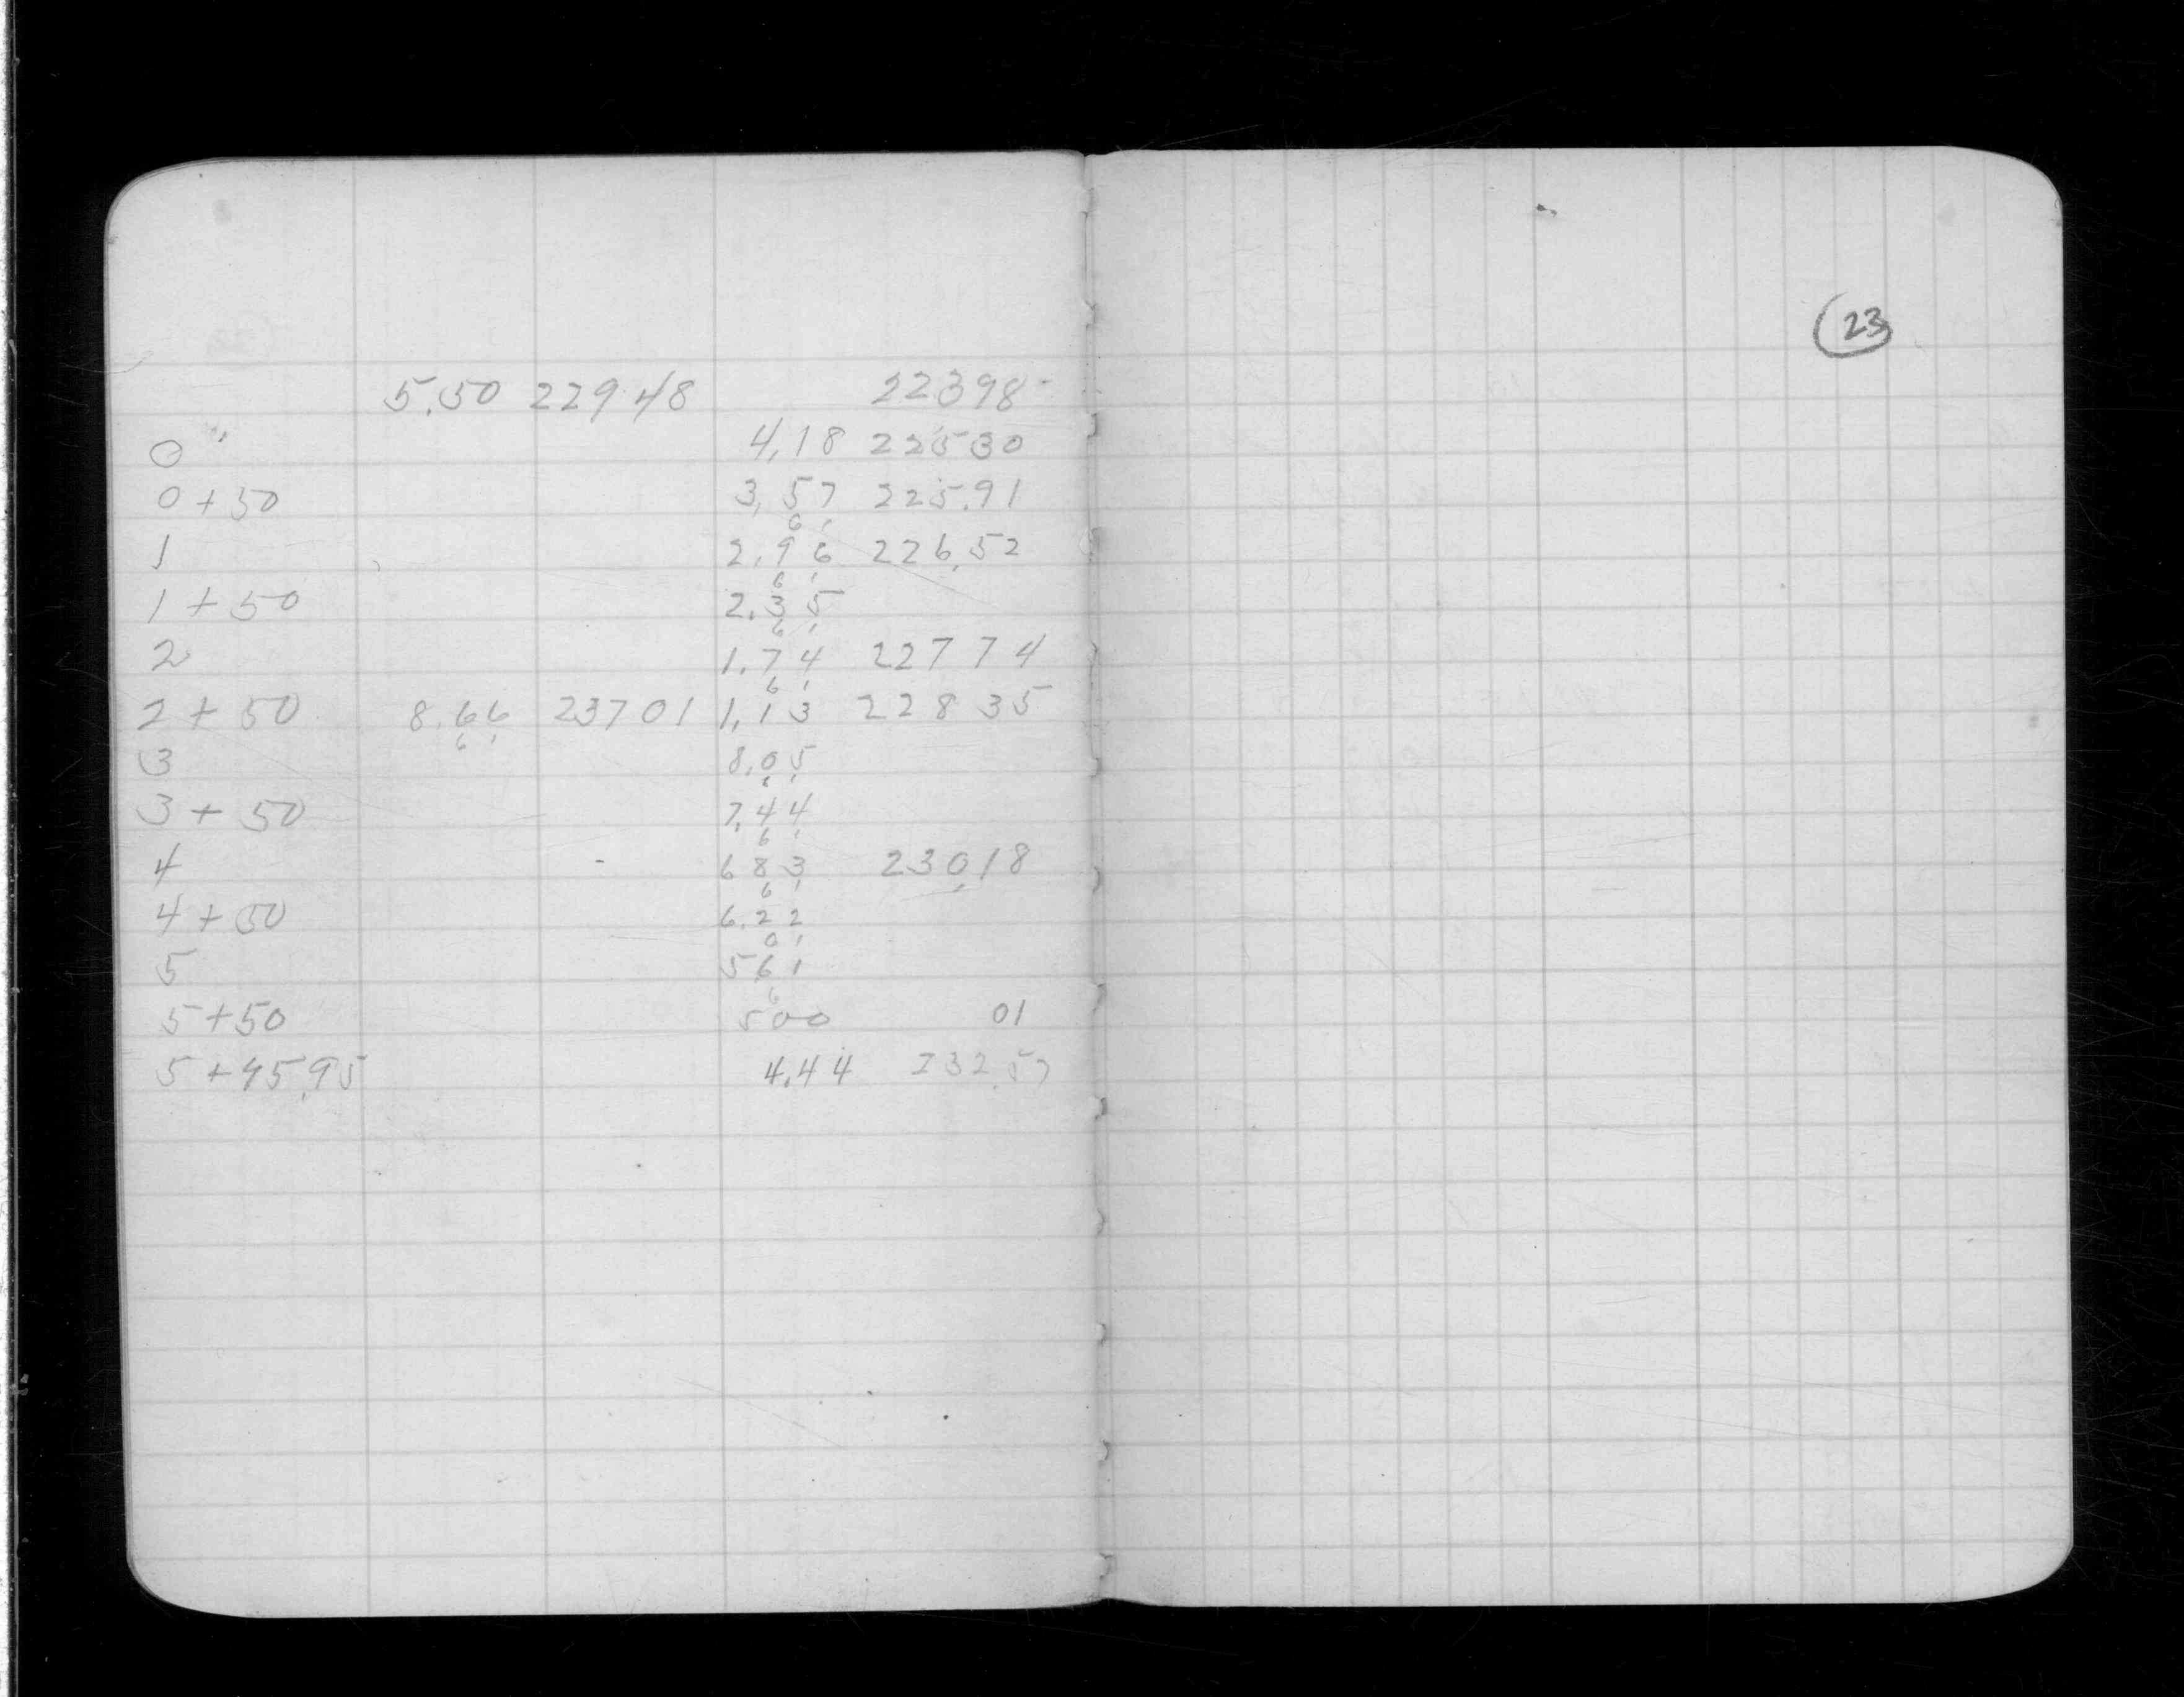 5.50 22948 22398
0 4.18 22530
0+50 3.57 225.91
6 1
1 2.96 226.52
6 1
1+50 2.35
6 1
2 1.74 22774
6 1
2+50 8.66 23701 1.13 22835
6 1
3 8.05
3+50 7.44
6 1
4 683 230.18
6 1
4+50 6.22
5 561
6
5+50 500 01
5+95.95 4.44 232.57
23